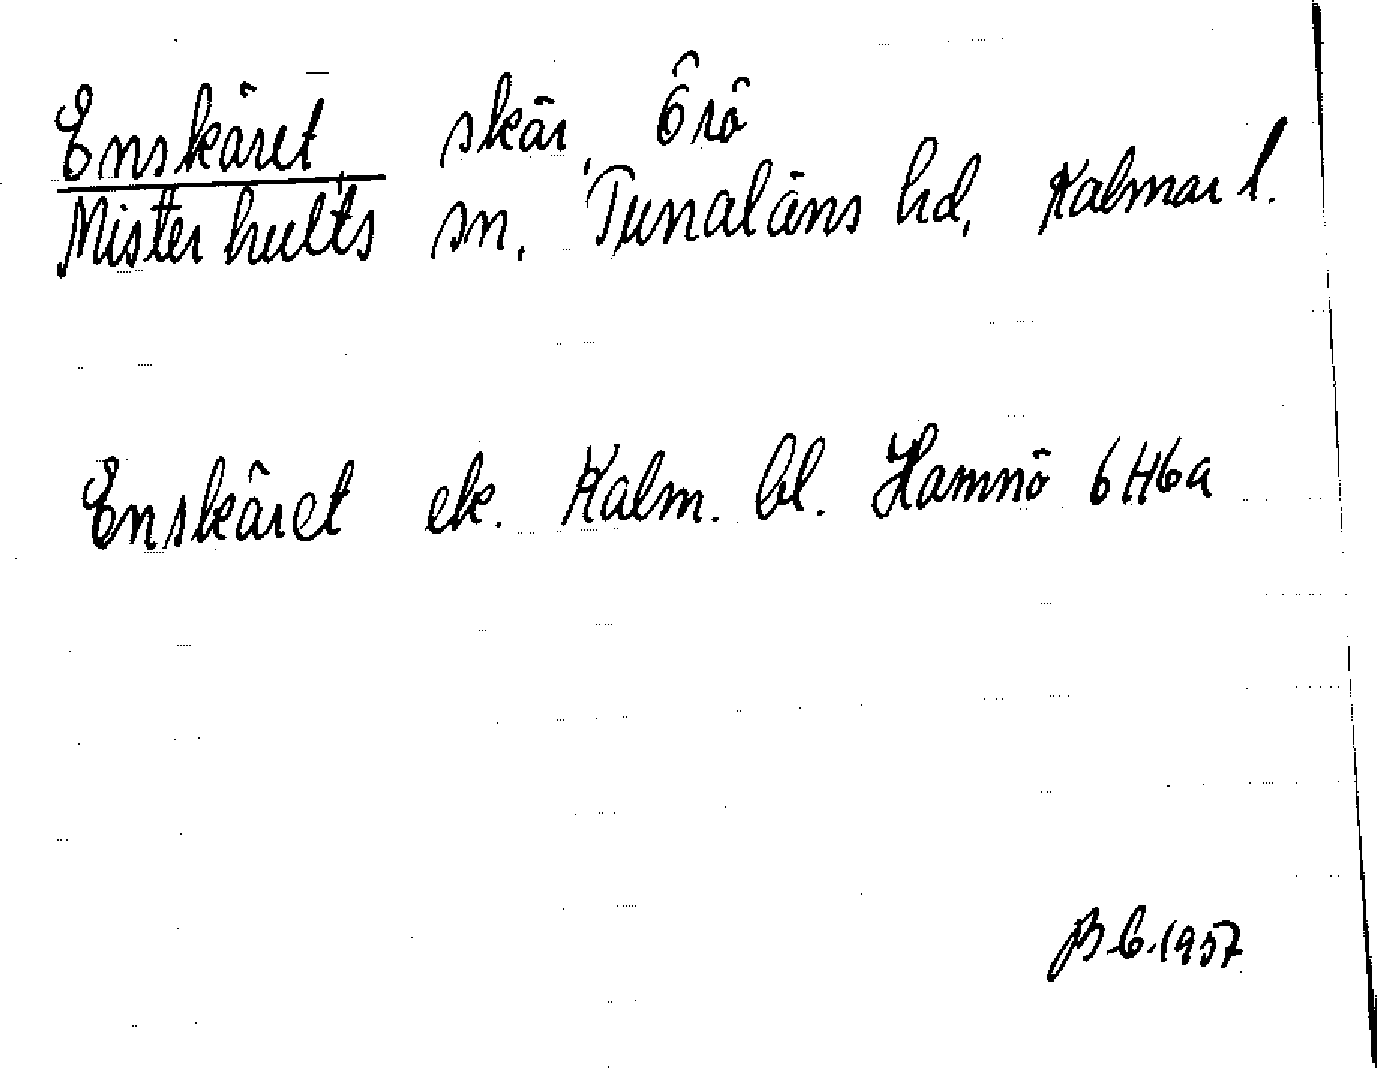 Enskäret, skär, Örö
Misterhults sn. Tunaläns hd, Kalmar l.
Enskäret ek. Kalm. bl. Hamnö 6H6a
B.C. 1957